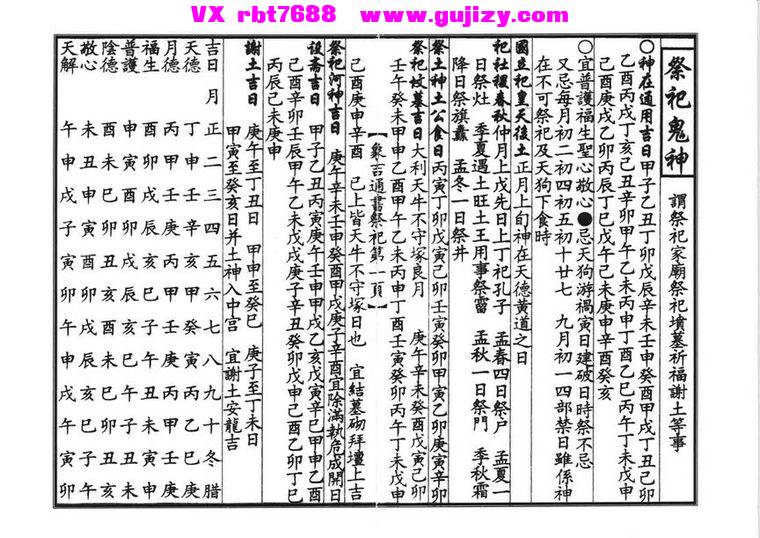 VX rbt7688 www.gujizy.com
祭祀鬼神
謂祭祀家廟祭祀墳墓祈福謝土等事
○神在通用吉日甲子乙丑丁卯戊辰辛未壬申癸酉甲戌丁丑己卯
乙酉丙戌丁亥己丑辛卯甲午乙未丙申丁酉乙巳丙午丁未戊申
己酉庚戌乙卯丙辰丁巳戊午己未庚申辛酉癸亥
○宜普護福生聖心敬心●忌天狗游禍寅日建破日時祭不忌
又忌每月初二初四初五初十廿七 九月初一四部禁日雖係神
在不可祭祀及天狗下食時
國立祀皇天後土正月上旬神在天德黃道之日
祀社稷春秋仲月上戊先日上丁祀孔子 孟春四日祭户 孟夏一
日祭灶 季夏遇土旺土王用事祭霤 孟秋一日祭門 季秋霜
降日祭旗纛 孟冬一日祭井
祭土神土公食日丙寅丁卯戊寅己卯壬寅癸卯甲寅乙卯庚寅辛卯
祭祀坟墓吉日大利天牛不守塚良月 庚午辛未癸酉戊寅己卯
壬午癸未甲申乙酉甲午乙未丙申丁酉壬寅癸卯丙午丁未戊申
己酉庚申辛酉 已上皆天牛不守塚日也 宜結墓砌拜壇上吉
【象吉通書祭祀第一頁】
祭祀河神吉日 庚午辛未壬申癸酉甲戌庚子辛酉宜除滿執危成開日
設斋吉日 甲子乙丑丙寅庚午壬申甲戌乙亥戊寅辛巳甲申乙酉
己酉辛卯壬辰甲午乙未戊戌庚子辛丑癸卯戊申己酉乙卯丁巳
丙辰己未庚申
謝土吉日 庚午至丁丑日 甲申至癸巳 庚子至丁未日
甲寅至癸亥日并土神入中宫 宜謝土安龍吉
吉日 月 正二三四五六七八九十冬腊
天德 丁申壬辛亥甲癸寅丙乙巳庚
月德 丙甲壬庚丙甲壬庚丙甲壬庚
福生 酉卯戌辰亥巳子午丑未寅申
普護 申寅酉卯戌辰亥巳子午丑未
陰德 酉未巳卯丑亥酉未巳卯丑亥
敬心 未丑申寅酉卯戌辰亥巳子午
天解 午申戌子寅卯午申戌子寅卯